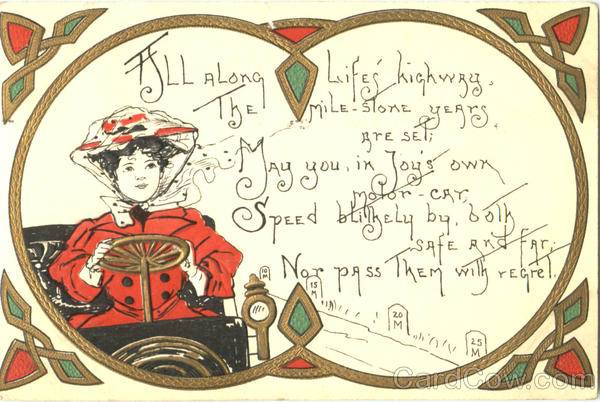 All along Lifes' highway,
The mile-stone years
are set;
May you, in Joy's own
motor-car,
Speed blithely by, both
safe and far,
Nor pass them with regret.
10 M
15 M
20 M
25 M
CardCow.com